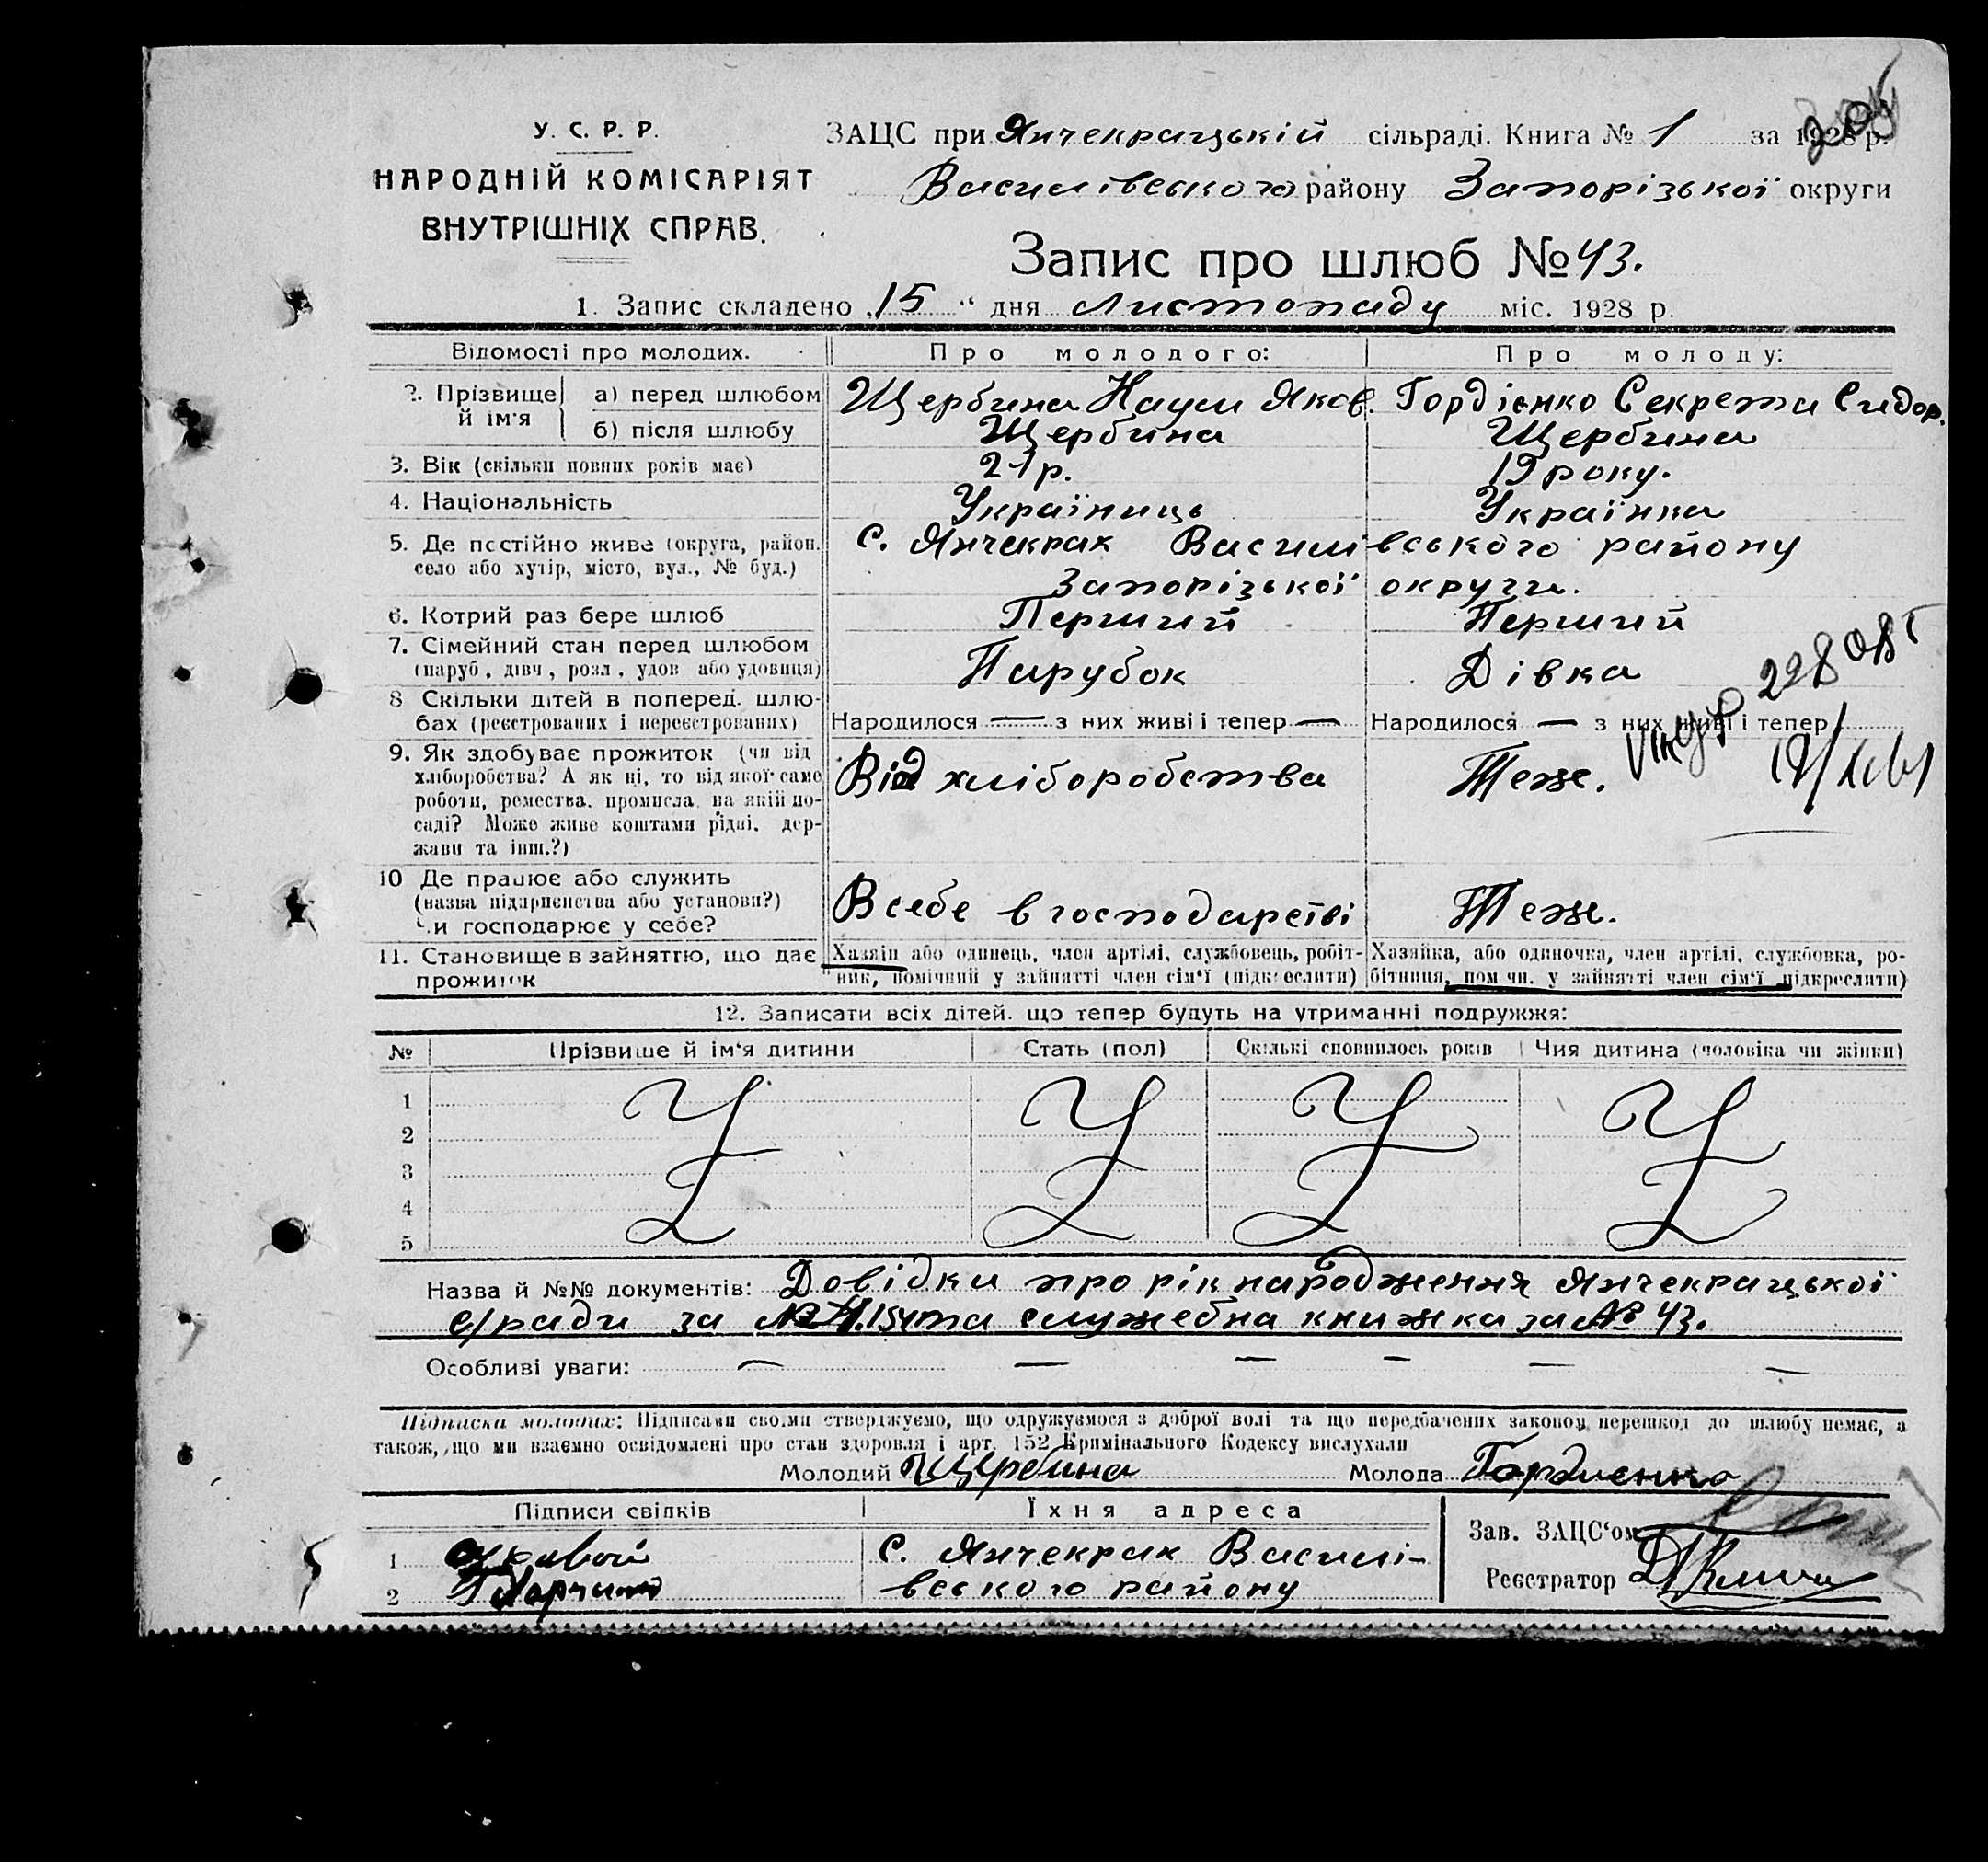 У. С. Р. Р.
НАРОДНІЙ КОМІСАРІЯТ
ВНУТРІШНІХ СПРАВ.
ЗАЦС при Янчекрацькій сільраді. Книга № 1 за 1928 р.
Василівського району Запорізької округи
Запис про шлюб № 43.
1. Запис складено „15 “ дня листопаду міс. 1928 р.
Відомості про молодих. Про молодого: Про молоду:
2. Прізвище й ім'я
а) перед шлюбом Щербина Наум Яков. Гордієнко Секрета Сидор.
б) після шлюбу Щербина Щербина
3. Вік (скільки повних років має) 21 р. 19 року.
4. Національність Україниць Українка
5. Де постійно живе (округа, район, С. Янчекрак Василівського району
село або хутір, місто, вул., № буд.) Запорізької округи.
6. Котрий раз бере шлюб Перший Перший
7. Сімейний стан перед шлюбом
(паруб., дівч., розл., удов. або удовиця) Парубок Дівка
8 Скільки дітей в поперед. шлю-
бах (реєстрованих і нереєстрованих) Народилося — з них живі і тепер — Народилося — з них живі і тепер
9. Як здобуває прожиток (чи від
хліборобства? А як ні, то від якої саме Від хліборобства Теж.
роботи, ремества, промисла, на якій по-
саді? Може живе коштами рідні, дер-
жави та інш.?)
10 Де працює або служить
(назва підприємства або установи?) В себе в господарстві Теж.
Чи господарює у себе?
11. Становище в зайняттю, що дає Хазяїн або одинець, член артілі, службовець, робіт- Хазяйка, або одиночка, член артілі, службовка, ро-
прожиток ник, помічний у зайнятті член сім'ї (підкреслити) бітниця, помічн. у зайнятті член сім'ї підкреслити)
12. Записати всіх дітей, що тепер будуть на утриманні подружжя:
№ Прізвище й ім'я дитини Стать (пол) Скількі сповнилось років Чия дитина (чоловіка чи жінки)
1
2
3
4
5
Назва й №№ документів: Довідки про рік народження Янчекрацької
с/ради за та служебна книжка за № 43.
Особливі уваги: — — — — — —
Підписка молодих: Підписами своїми стверджуємо, що одружуємося з доброї волі та що передбачених законом перешкод до шлюбу немає, а
також, що ми взаємно освідомлені про стан здоровля і арт. 152 Кримінального Кодексу вислухали
Молодий Щербина Молода Гордиенко
Підписи свідків Їхня адреса
Зав. ЗАЦС'ом
1 С. Янчекрак Василі-
2 вського району
Реєстратор